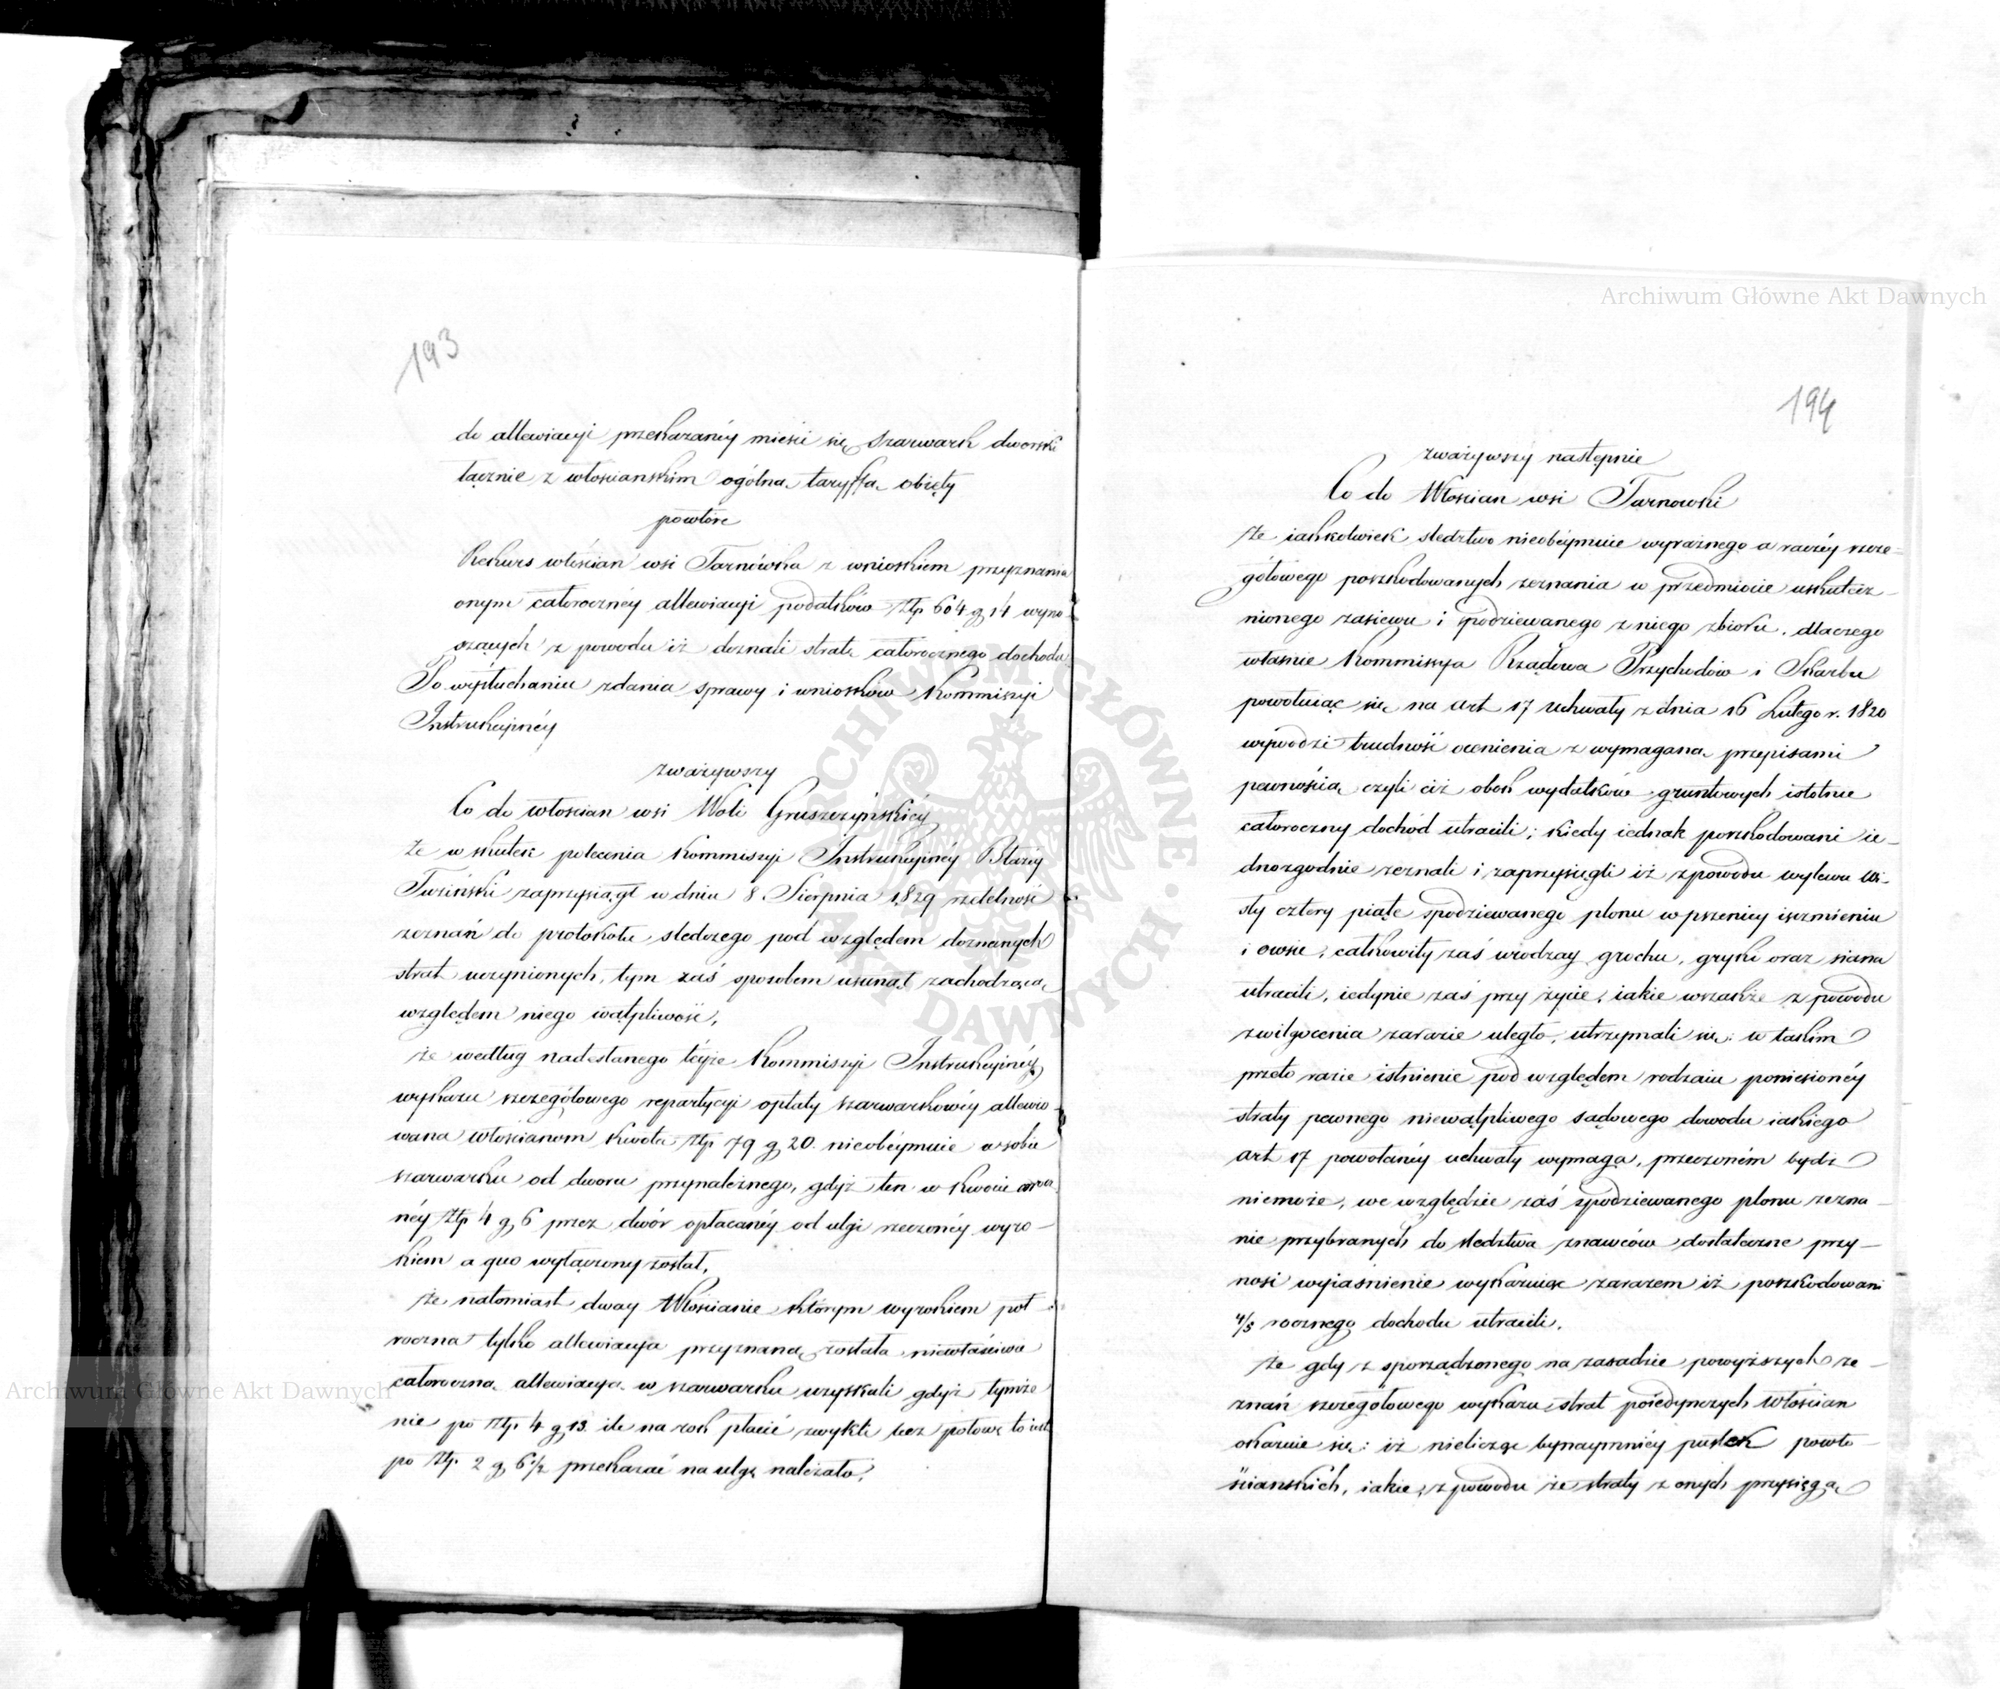 193
do allewiacyi przekazanéy mieści się szarwark dworski
łącznie z włościańskim ogólną taryffą obięty
powtóre
Rekurs włościan wsi Tarnówka z wnioskiem przyznania
onym całorocznéy allewiacyi podatków Złp 604 g 14 wyno-
szących z powodu iż doznali stratę całorocznego dochodu
Po wysłuchaniu zdania sprawy i wniosków Kommissyi
Instrukcyinéy
zważywszy
Co do włościan wsi Woli Gruszczyńskiéy
Że w skutek polecenia Kommissyi Instrukcyinéy Błażey
Tuziński zaprzysiągł w dniu 8 Sierpnia 1829 rzetelność
zeznań do protokółu śledczego pod względem doznanych
strat uczynionych, tym zaś sposobem usunął zachodzącą
względem niego wątpliwość,
że według nadesłanego téyże Kommissyi Instrukcyinéy
wykazu szczegółowego repartycyi opłaty szarwarkowéy allewio-
wana włościanom kwota Złp 79 g 20. nieobéymuie w sobie
szarwarku od dworu przynależnego, gdyż ten w kwocie
néy Złp 4 g 6 przez dwór opłacanéy od ulgi rzeczonéy wyro-
kiem a quo wyłączony został,
że natomiast dway Włościanie którym wyrokiem pół-
roczna tylko allewiacya przyznaną została niewłaściwie
całoroczną allewiacyą w szarwarku uzyskali gdyż tymże
nie po Złp. 4 g 13. ile na rok płacić zwykli lecz połowę to iest
po Złp. 2 g 6½ przekazać na ulgę należało,
Archiwum Główne Akt Dawnych
194
zważywszy następnie
Co do Włościan wsi Tarnowki
że iakkolwiek śledztwo nieobéymuie wyraźnego a raczéy szcze-
gółowego poszkodowanych zeznania w przedmiocie uskutecz-
nionego zasiewu i spodziewanego z niego zbioru, dlaczego
właśnie Kommissya Rządowa Przychodów i Skarbu
powołuiąc się na art 17 Uchwały z dnia 16 Lutego r. 1820
wywodzi trudność ocenienia z wymaganą przepisami
pewnością czyli ciż obok wydatków gruntowych istotnie
całoroczny dochód utracili; kiedy iednak poszkodowani ie-
dnozgodnie zeznali i zaprzysięgli iż z powodu wylewu Wi-
sły cztery piąte spodziewanego plonu w pszenicy ięczmieniu
i owsie, całkowity zaś urodzay grochu, gryki oraz siana
utracili, iedynie zaś przy życie, iakie wszakże z powodu
zwilgocenia zarazie uległo, utrzymali się: w takim
przeto razie istnienie pod względem rodzaiu poniesionéy
straty pewnego niewątpliwego sądowego dowodu iakiego
art 17 powołanéy uchwały wymaga, przeczoném bydź
niemoże, we względzie zaś spodziewanego plonu zezna-
nie przybranych do śledztwa znawców dostateczne przy-
nosi wyiaśnienie wykazuiąc zarazem iż poszkodowani
4/5 rocznego dochodu utracili.
że gdy z sporządzonego na zasadzie powyższych ze-
znań szczegółowego wykazu strat poiedynczych Włościan
okazuie się: iż nielicząc bynaymniéy pustek powło-
ściańskich, iakie z powodu że straty z onych przysięgą
Archiwum Główne Akt Dawnych
ARCHIWUM GŁÓWNE AKT DAWNYCH